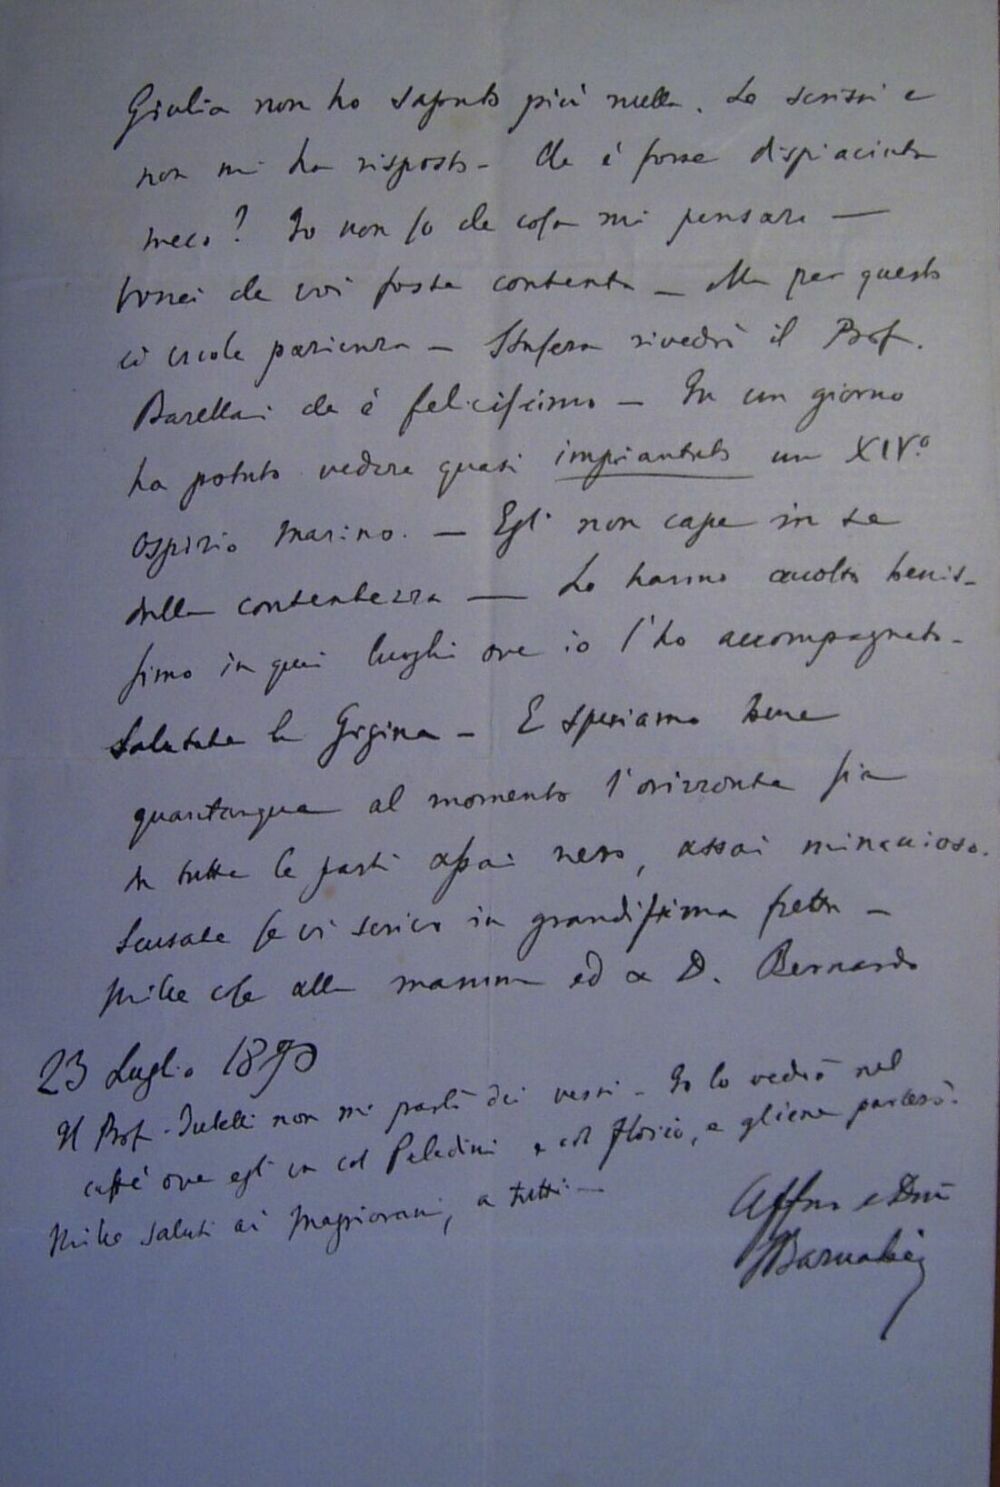 Giulia non ho saputo più nulla. Le scrissi e
non mi ha risposto - Che è forse dispiaciuta
meco? Io non so che cosa mi pensare —
Vorrei che voi foste contenta — Ma per questo
ci vuole pazienza — Stasera rivedrò il Prof.
Barellai che è felicissimo — In un giorno
ha potuto vedere quasi impiantato un XIV.º
Ospizio Marino. — Egli non cape in se
della contentezza — Lo hanno accolto benis-
simo in quei luoghi ove io l'ho accompagnato -
Salutate la Gigina - E speriamo bene
quantunque al momento l'orizzonte sia
da tutte le parti assai nero, assai minaccioso.
Scusate se vi scrivo in grandissima fretta —
Mille cose alla mamma ed a D. Bernardo
23 Luglio 1870
Il Prof. non mi parlò dei versi - Io lo vedrò nel
caffè ove egli va col Paladini e col Florio, e gliene parlerò.
Mille saluti ai Maggiorani, a tutti —
Affmo e Dmo
Barnabei